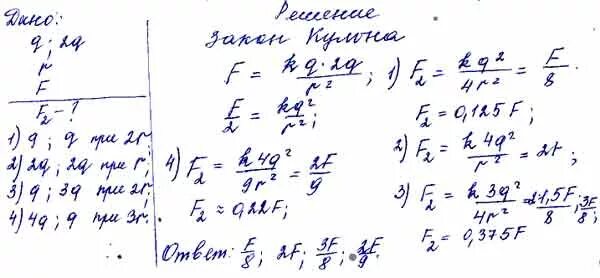 Дано:
q; 2q
r
F
F₂ - ?
1) q; q при 2r
2) 2q; 2q при r;
3) q; 3q при 2r;
4) 4q; q при 3r.
Решение
Закон Кулона
F = kq·2q/r²;
F/2 = kq²/r²;
1) F₂ = kq²/4r² = F/8.
F₂ = 0,125F;
2) F₂ = k4q²/r² = 2F;
3) F₂ = k3q²/4r² = 1,5F/8; 3F/8
F₂ = 0,375F
4) F₂ = k4q²/9r² = 2F/9
F₂ ≈ 0,22F;
Ответ: F/8; 2F; 3F/8; 2F/9.